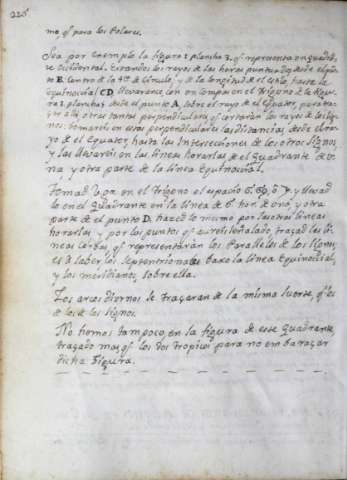 226
mo qͥ para los Polares.
Sea por exemplo la figura 1 plancha 3. qͥ representa un quadrã-
te Occidental. tirandos los rayos de las horas puntuados desde el pũ-
to E. Centro de la 4ª de circulo, y de la longitud de el estilo, hasta la
Equinoccial CD. llevaranse con un Compas en el Trigono de la figu-
ra 2. plancha 5 desde el punto A, sobre el rayo de el Equator, para tra-
çar alli otras tantas perpendiculares qͥ cortaràn los rayos de los sig-
nos: tomareis en estas perpendiculares las distancias desde el ra-
yo de el Equator, hasta las Intersecciones de los otros signos,
y las llevareis en las lineas horarias de el quadrante de u-
na, y otra parte de la linea Equinoccial.
Tomad V.gr. en el trigono el espacio 6. 69, ò y llevad
lo en el quadrante en la linea de 6. hor. de una, y otra
parte de el punto D. hazed lo mismo por las otras lineas
horarias y por los puntos qͥ aureis señalado, traçad las li-
neas corbas, qͥ representaràn los Paralleles de los signos,
es à saber los septentrionales baxo la linea Equinoccial,
y los meridianos, sobre ella.
Los arcos diornos se traçaran de la misma suerte, qͥ los
de los signos.
No hemos tampoco en la figura de este quadrante
traçado mas qͥ los dos tropicos para no embaraçar
dicha Figura.